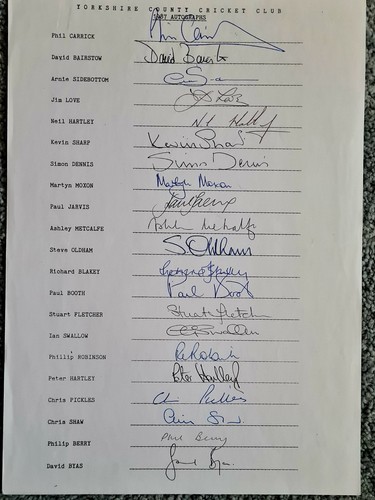 YORKSHIRE COUNTY CRICKET CLUB
1987 AUTOGRAPHS
Phil CARRICK
David BAIRSTOW David Bairstow
Arnie SIDEBOTTOM
Jim LOVE
Neil HARTLEY
Kevin SHARP Kevin Sharp
Simon DENNIS Simon Dennis
Martyn MOXON Martyn Moxon
Paul JARVIS Paul Jarvis
Ashley METCALFE Ashley Metcalfe
Steve OLDHAM S. Oldham
Richard BLAKEY
Paul BOOTH Paul Booth
Stuart FLETCHER Stuart Fletcher
Ian SWALLOW
Phillip ROBINSON
Peter HARTLEY Peter Hartley
Chris PICKLES Chris Pickles
Chris SHAW
Philip BERRY Phil Berry
David BYAS